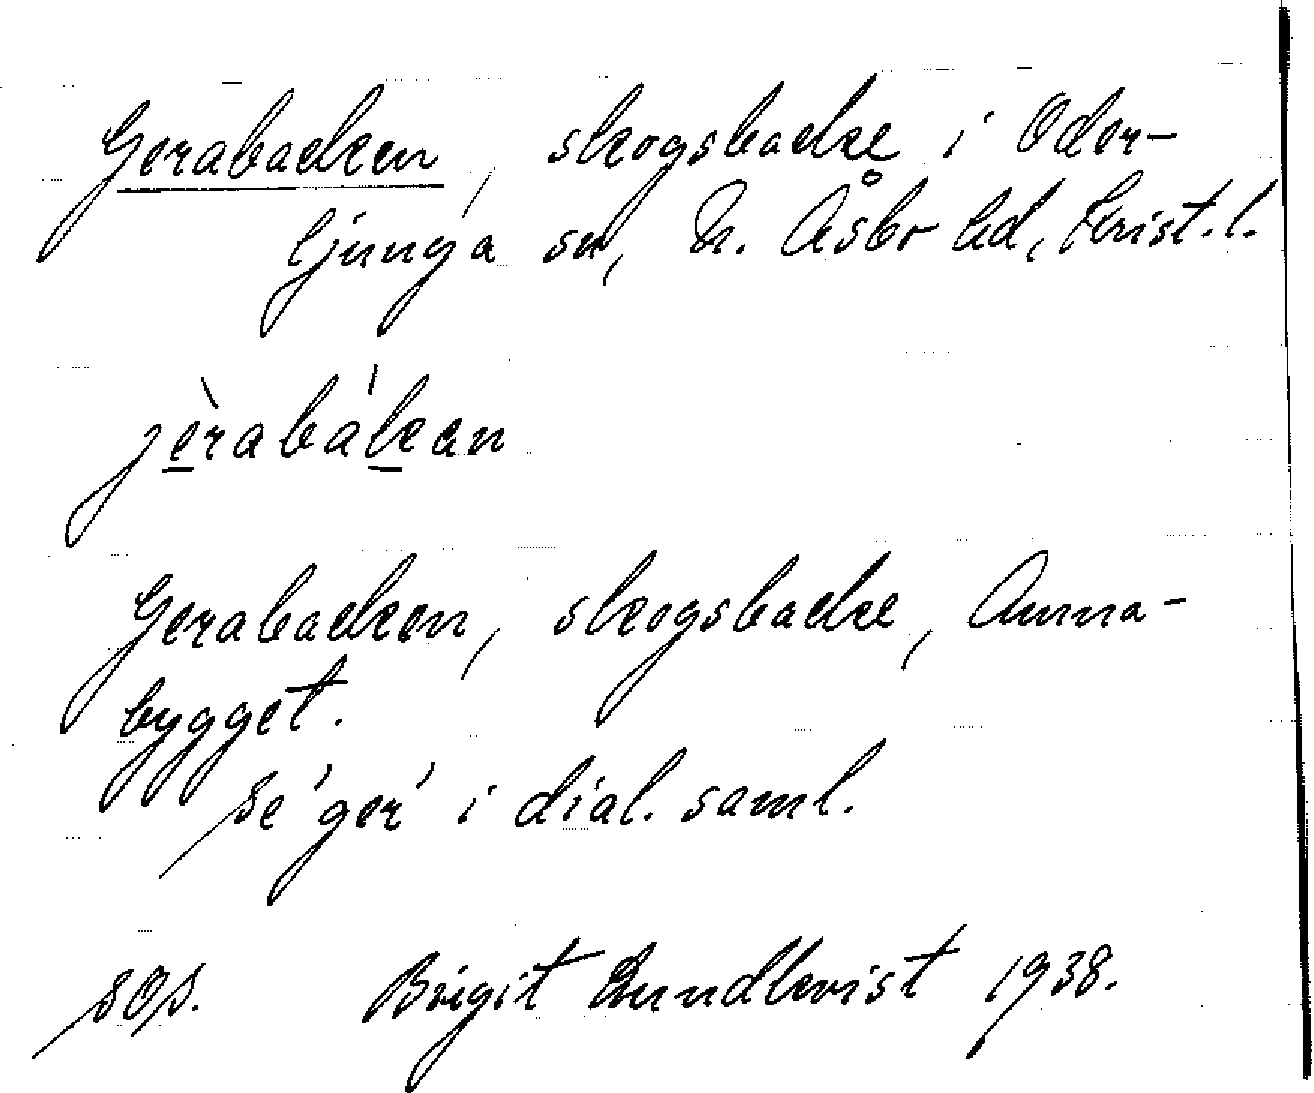 Gerabacken, skogsbacke i Oder-
ljunga sn, N. Åsbo hd, Krist. l.
jèrabákan
Gerabacken, skogsbacke, Anna-
bygget.
Se 'ger' i dial. saml.
SOS. Birgit Lundkvist 1938.